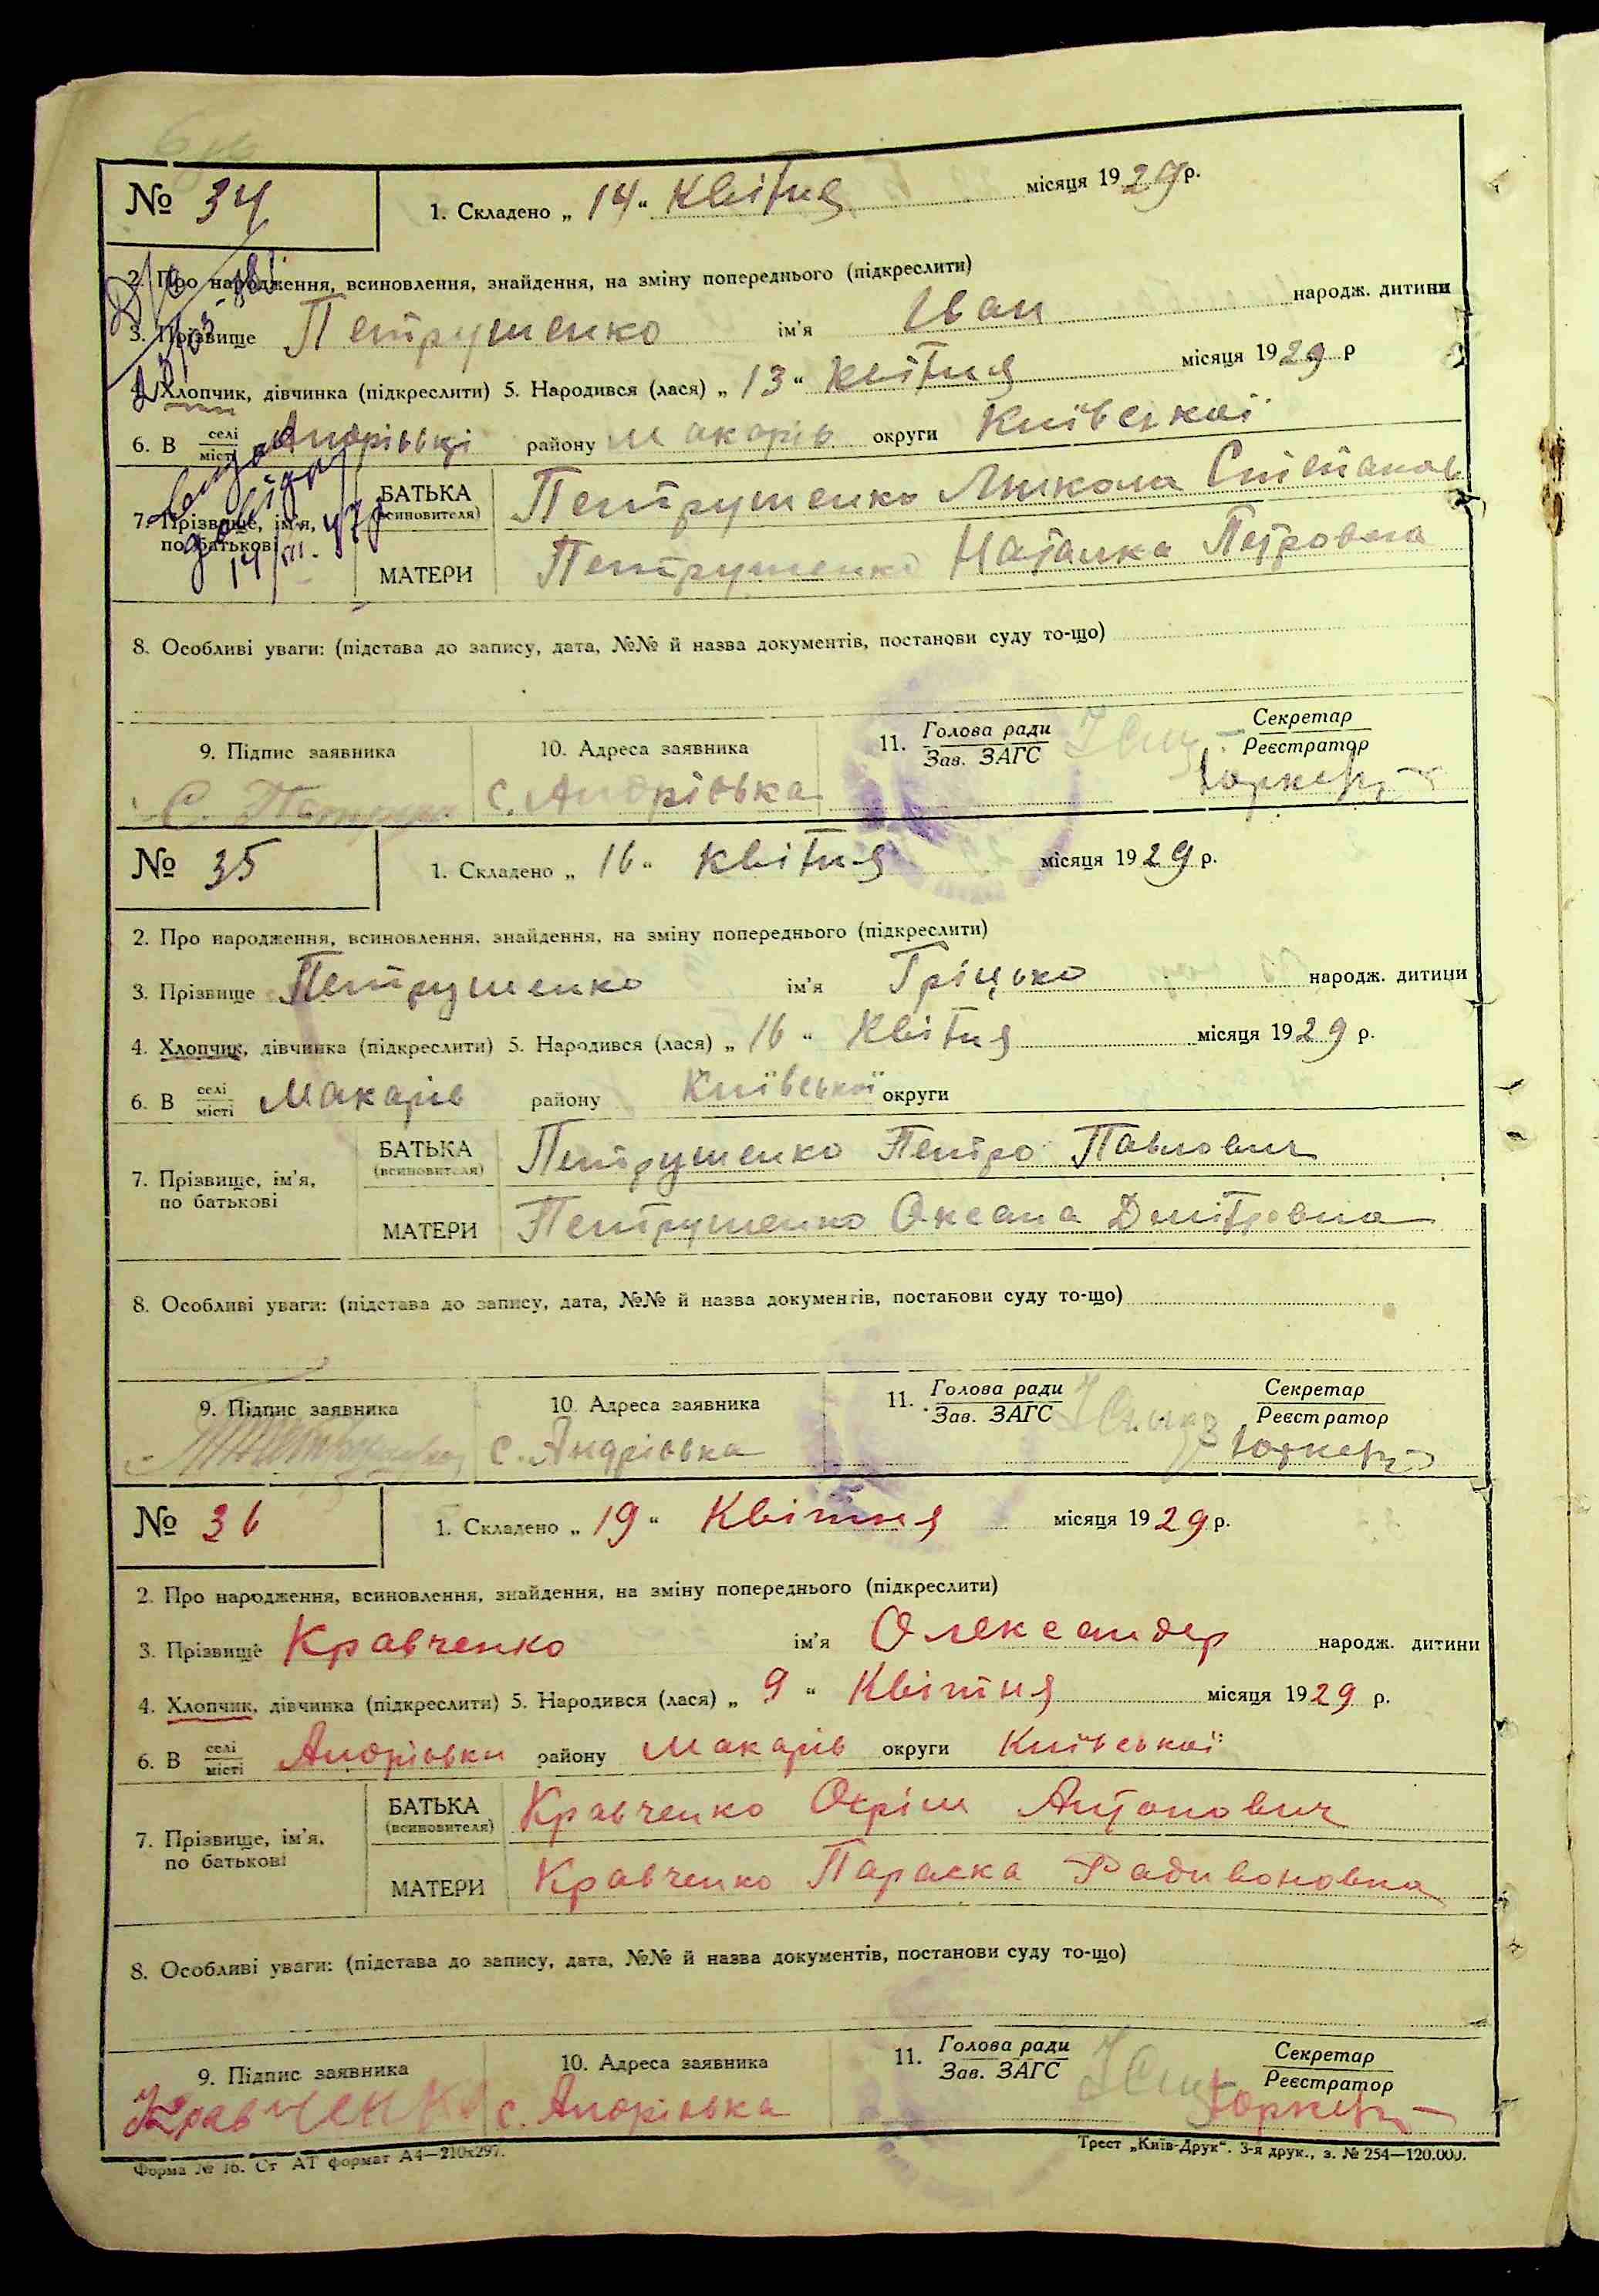 № 34
1. Складено „ 14 “ Квітня місяця 1929 р.
2. Про народження, всиновлення, знайдення, на зміну попереднього (підкреслити)
3. Прізвище Петрушенко ім'я Іван народж. дитини
4. Хлопчик, дівчинка (підкреслити) 5. Народився (лася) „ 13 “ Квітня місяця 1929 р
6. В селі місті Андрівці району Макарів округи Київської
7. Прізвище, ім'я, по батькові
БАТЬКА (всиновителя) Петрушенко Микола Степанов
МАТЕРИ Петрушенко Наталка Петровна
8. Особливі уваги: (підстава до запису, дата, №№ й назва документів, постанови суду то-що)
9. Підпис заявника 10. Адреса заявника 11. Голова ради Зав. ЗАГС Секретар Реєстратор
с. Андрівка
№ 35
1. Складено „ 16 “ Квітня місяця 1929 р.
2. Про народження, всиновлення, знайдення, на зміну попереднього (підкреслити)
3. Прізвище Петрушенко ім'я Гріцько народж. дитини
4. Хлопчик, дівчинка (підкреслити) 5. Народився (лася) „ 16 “ Квітня місяця 1929 р.
6. В селі місті Макарів району Київської округи
7. Прізвище, ім'я, по батькові
БАТЬКА (всиновителя) Петрушенко Петро Павлович
МАТЕРИ Петрушенко Оксана Дмітровна
8. Особливі уваги: (підстава до запису, дата, №№ й назва документів, постанови суду то-що)
9. Підпис заявника 10. Адреса заявника 11. Голова ради Зав. ЗАГС Секретар Реєстратор
с. Андрівка
№ 36
1. Складено „ 19 “ Квітня місяця 1929 р.
2. Про народження, всиновлення, знайдення, на зміну попереднього (підкреслити)
3. Прізвище Кравченко ім'я Олександер народж. дитини
4. Хлопчик, дівчинка (підкреслити) 5. Народився (лася) „ 9 “ Квітня місяця 1929 р.
6. В селі місті Андрівки району Макарів округи Київської
7. Прізвище, ім'я, по батькові
БАТЬКА (всиновителя) Кравченко Охрім Антонович
МАТЕРИ Кравченко Параска Радивоновна
8. Особливі уваги: (підстава до запису, дата, №№ й назва документів, постанови суду то-що)
9. Підпис заявника 10. Адреса заявника 11. Голова ради Зав. ЗАГС Секретар Реєстратор
Кравченко с. Андрівка
Форма № 16. Ст АТ формат А4—210х297.
Трест „Київ-Друк“. 3-я друк., з. № 254—120.000.